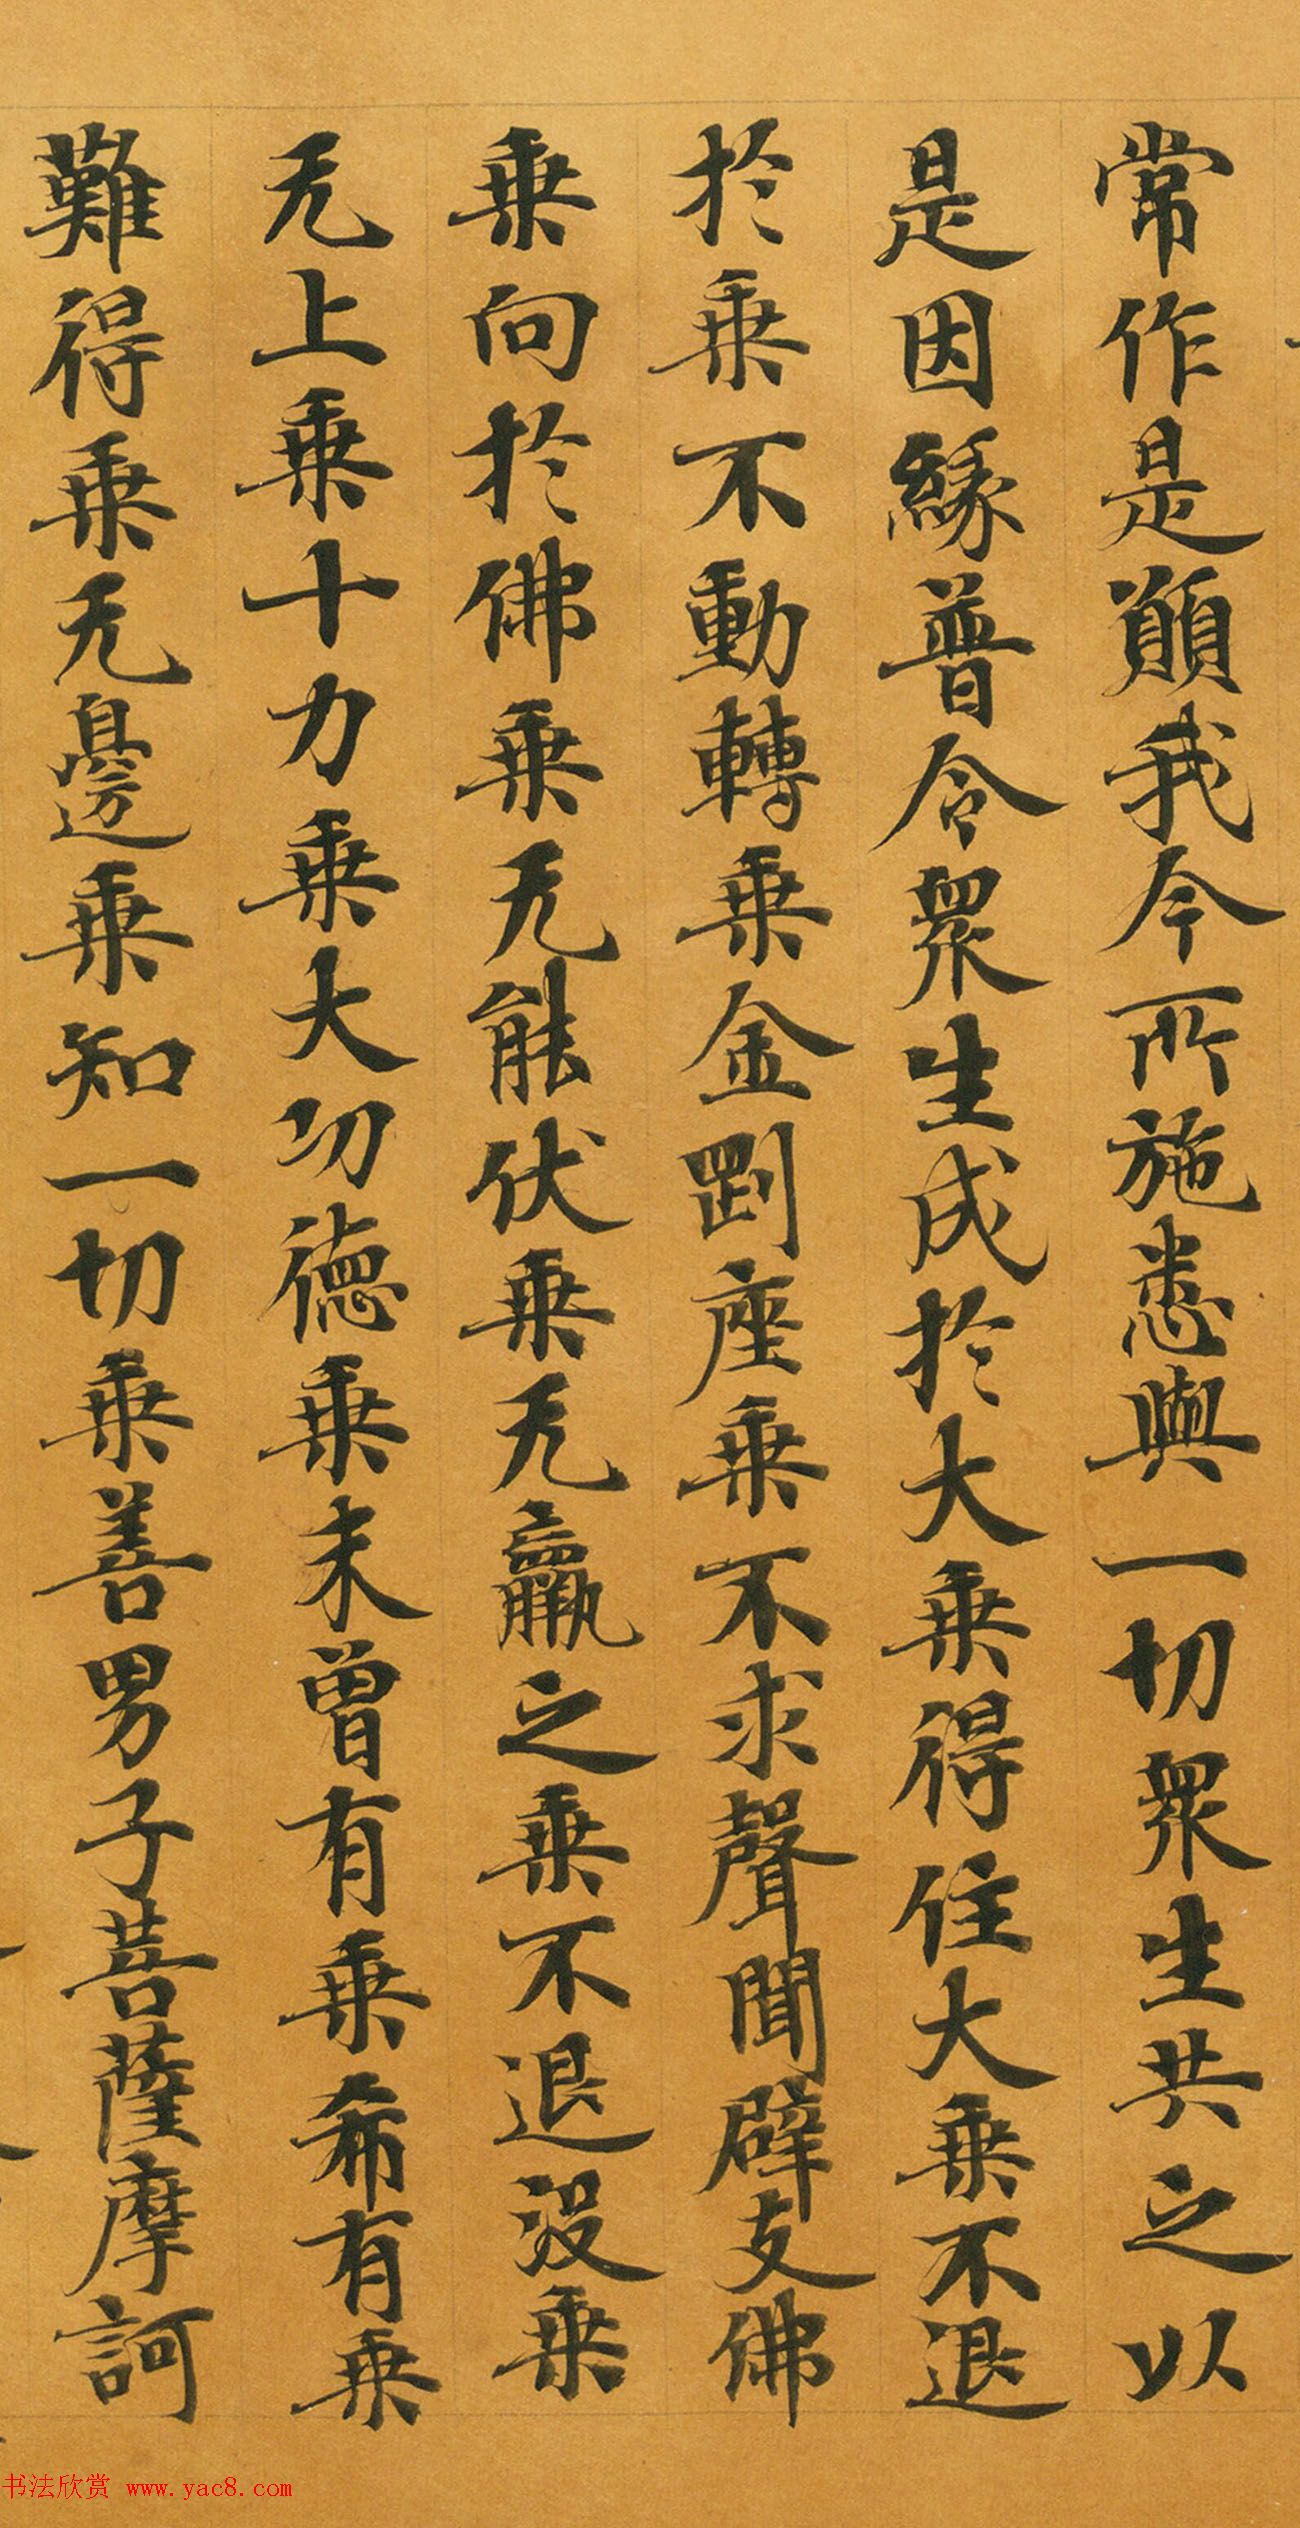 常作是願我今所施悉與一切眾生共之以
是因緣普令眾生成於大乘得住大乘不退
於乘不動轉乘金剛座乘不求聲聞辟支佛
乘向於佛乘无能伏乘无羸之乘不退沒乘
无上乘十力乘大功德乘未曾有乘希有乘
難得乘无邊乘知一切乘善男子菩薩摩訶
书法欣赏 www.yac8.com